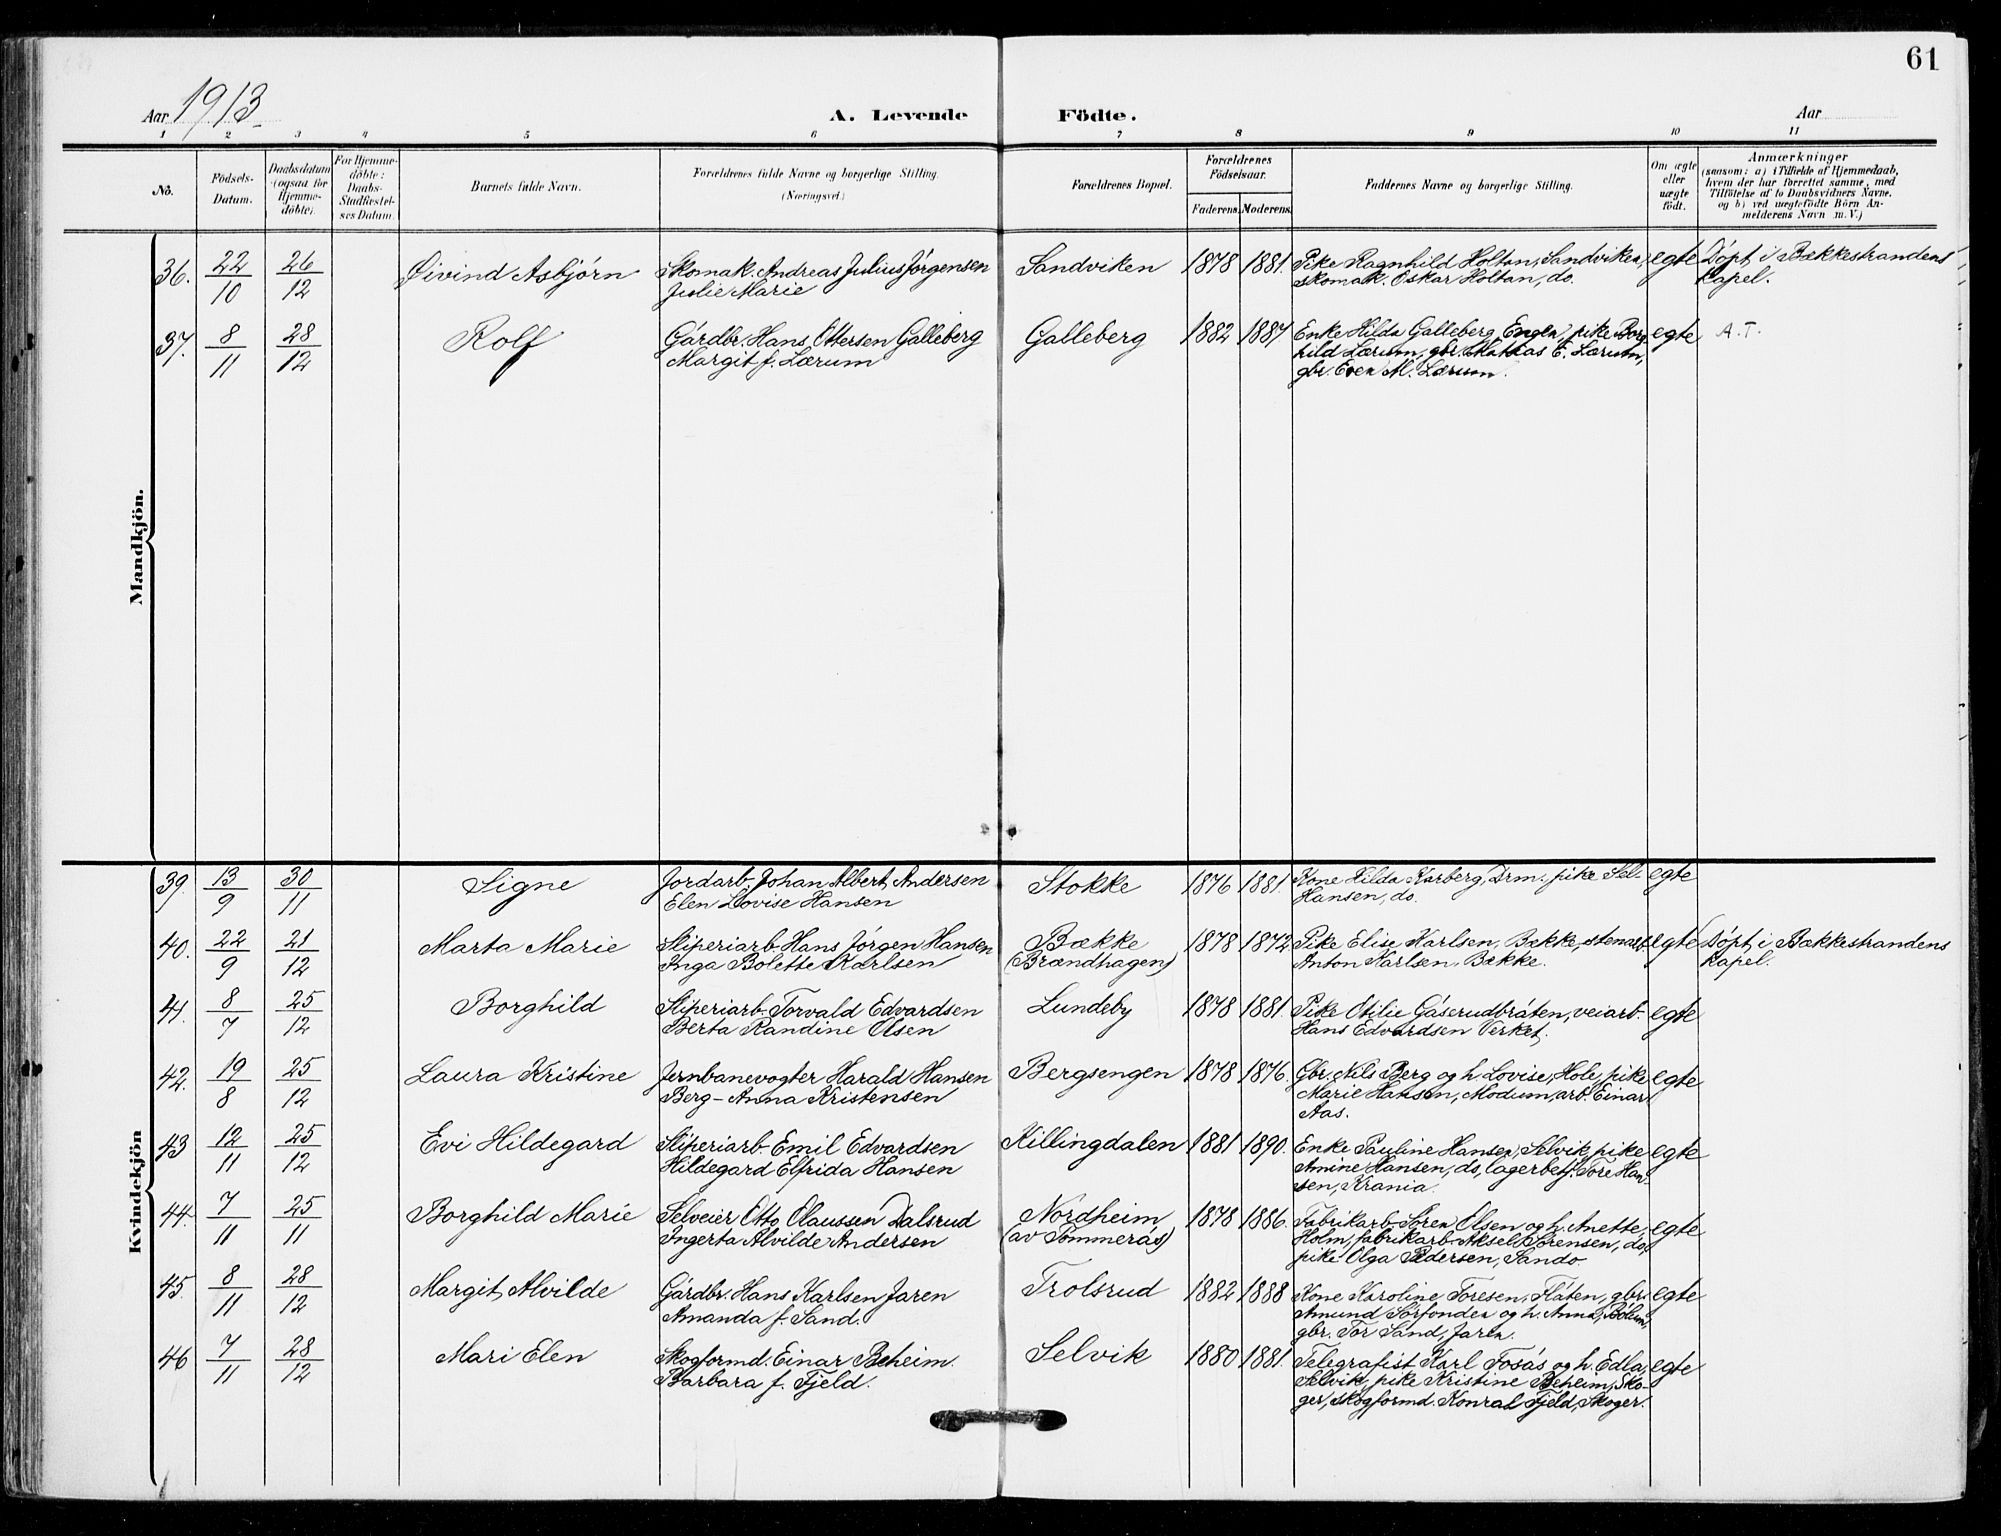 61
Aar 1913.
A. Levende Födte.
Aar
1 2 3 4 5 6 7 8 9 10 11
No.
Födsels-Datum.
Daabsdatum (ogsaa for Hjemme-döbte).
For Hjemme-döbte: Daabs-Stadfæstel-ses Datum.
Barnets fulde Navn.
Forældrenes fulde Navne og borgerlige Stilling.
(Næringsvei.)
Forældrenes Bopæl.
Forældrenes Födselsaar.
Faderens. Moderens.
Faddernes Navne og borgerlige Stilling.
Om ægte eller uægte födt.
Anmærkninger
(saasom: a) i Tilfælde af Hjemmedaab,
hvem der har forrettet samme, med
Tilföielse af to Daabsvidners Navne.
og b) ved uægtefödte Börn An-
melderens Navn m. V.)
Mandkjön.
36. 22/10 26/12 Øivind Asbjørn Skomak. Andreas Julius Jørgensen Sandviken 1878 1881. Pike Ragnhild Holtan, Sandviken, egte Døpt i Bækkestrandens
Julie Marie skomak. Oskar Holtan, do. kapel.
37. 8/11 28/12 Rolf Gårdbr. Hans Ottersen Galleberg Galleberg 1882 1887 Enke Hilda Galleberg, Engen, pike Borg- egte A.T.
Margit f. Lærum hild Lærum, gbr. Mathias E. Lærum,
gbr. Even M. Lærum.
Kvindekjön
39. 13/9 30/11 Signe Jordarb. Johan Albert Andersen Stokke 1876 1881. Kone Hilda Karberg, Drm. pike Sel- egte
Elen Lovise Hansen Hansen, do.
40. 22/9 21/12 Marta Marie Sliperiarb. Hans Jørgen Hansen Bække 1878 1872 Pike Elise Karlsen, Bække, stenarb. egte Døpt i Bækkestrandens
Inga Bolette Karlsen (Brændhagen) Anton Karlsen, Bække. kapel.
41. 8/7 25/12 Borghild Sliperiarb. Torvald Edvardsen Lundeby 1878 1881. Pike Otilie Gåserudbråten, veiarb. egte
Berta Randine Olsen Hans Edvardsen Verket.
42. 19/8 25/12 Laura Kristine Jernbanevogter Harald Hansen Bergsengen 1878 1876. Gbr. Nils Berg og h. Lovise, Hole, pike egte
Berg - Anna Kristensen Marie Hansen, Modum, arb. Einar
Aas.
43 12/11 25/12 Evi Hildegard Sliperiarb. Emil Edvardsen Killingdalen 1881 1890. Enke Pauline Hansen, Selvik, pike egte
Hildegard Elfrida Hansen Amine Hansen, do, lagerbetj. Tore Han-
sen, Krania.
44. 7/11 25/11 Borghild Marie Selveier Otto Olaussen Dalsrud Nordheim 1878 1886. Fabrikarb. Søren Olsen og h. Anette, egte
Ingerta Alvilde Andersen (av Sommerås) Holm, fabrikarb. Aksel Sørensen, do,
pike Olga Pedersen, Sando.
45. 8/11 28/12 Margit Alvilde Gårdbr. Hans Karlsen Jaren Trolsrud 1882 1888 Kone Karoline Toresen, Flåten, gbr. egte
Amanda f. Sand. Amund Sørfonden og h. Anna, Bølum,
gbr. Tor Sand, Jaren.
46 7/11 28/12 Mari Elen Skogformd. Einar Beheim. Selvik 1880 1881. Telegrafist Karl Fosås og h. Edla, egte
Barbara f. Fjeld. Selvik, pike Kristine Beheim, Sko-
ger, skogformd. Konrad Fjeld, Skoger.